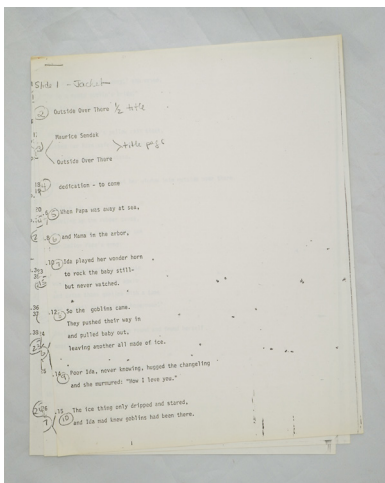 Slide 1 - Jacket
2 Outside Over There ½ title
Maurice Sendak
title page
Outside Over There
4 dedication - to come
5 When Papa was away at sea,
6 and Mama in the arbor,
Ida played her wonder horn
to rock the baby still-
but never watched.
So the goblins came.
They pushed their way in
and pulled baby out,
leaving another all made of ice.
Poor Ida, never knowing, hugged the changeling
and she murmured: "How I love you."
10 The ice thing only dripped and stared,
and Ida mad knew goblins had been there.